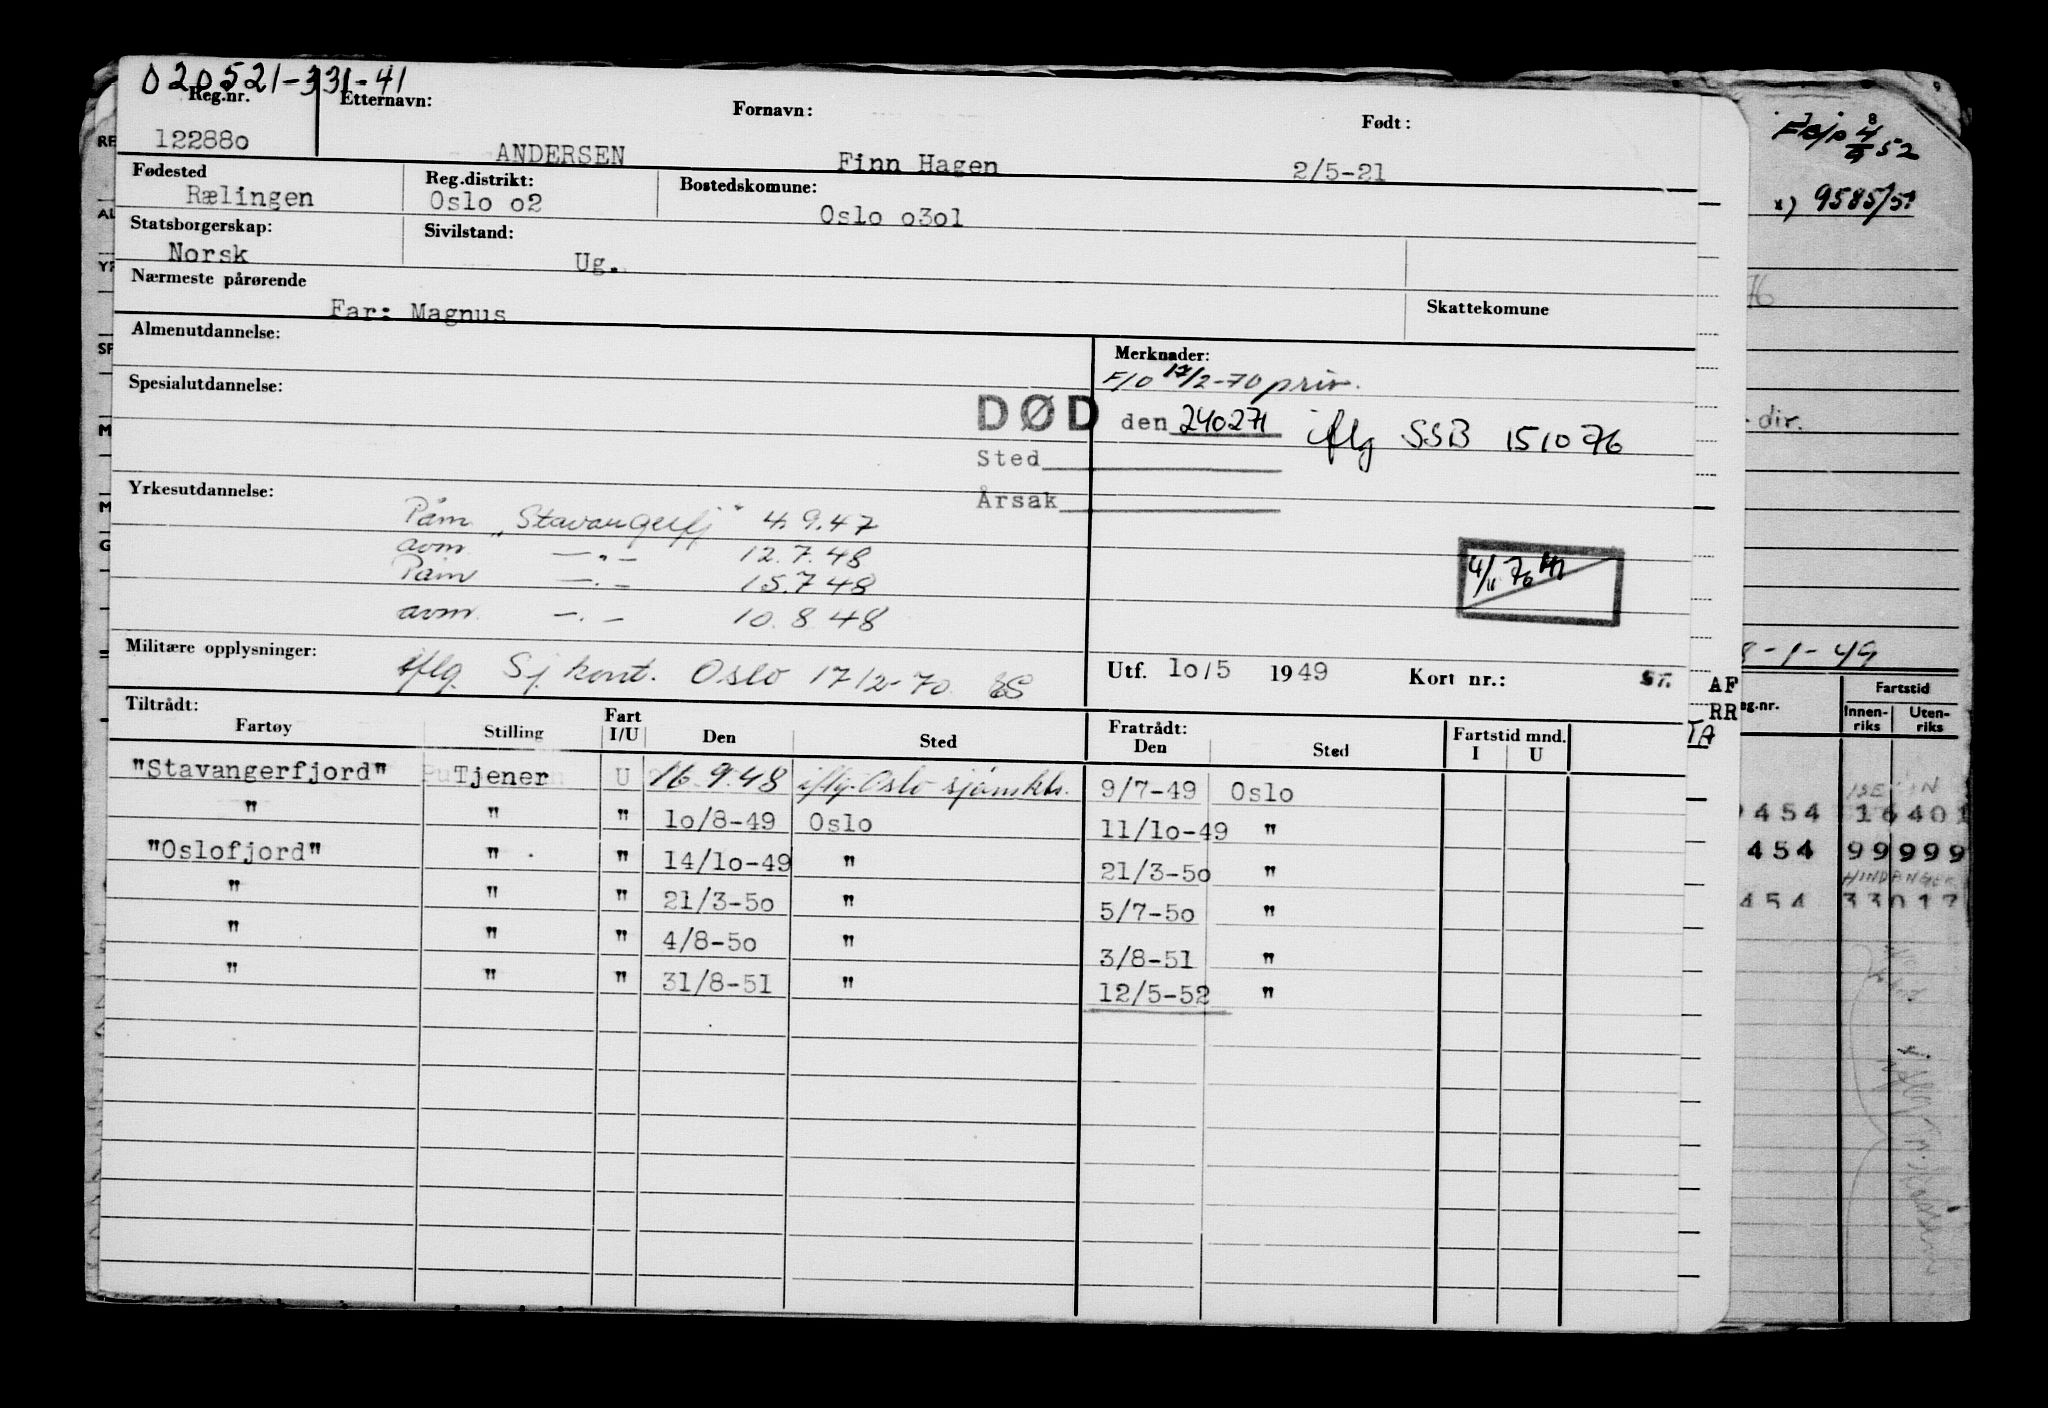 020521-331-41
Reg.nr. Etternavn: Fornavn: Født:
12288o ANDERSEN Finn Hagen 2/5-21
Fødested Reg.distrikt: Bostedskomune:
Rælingen Oslo o2 Oslo o3o1
Statsborgerskap: Sivilstand:
Norsk Ug.
Nærmeste pårørende Skattekomune
Far: Magnus
Almenutdannelse: Merknader:
F/O 17/2-70 priv.
Spesialutdannelse:
DØD den 240271 iflg SSB 151076
Sted
Årsak
Yrkesutdannelse:
Påm "Stavangerfj" 4.9.47
avm — " — 12.7.48
Påm — " — 15.7 48
avm. — " — 10.8 48
4/11 76
Militære opplysninger:
iflg. Sj. kont. Oslo 17/2-70 ES
Utf. 1o/5 1949 Kort nr.:
Tiltrådt: Fratrådt:
Fartøy Stilling Fart I/U Den Sted Den Sted Fartstid mnd. I U
"Stavangerfjord" Tjener U 16.9.48 iflg. Oslo sjømktr. 9/7-49 Oslo
" " " 1o/8-49 Oslo 11/1o-49 "
"Oslofjord" " " 14/1o-49 " 21/3-5o "
" " " 21/3-5o " 5/7-5o "
" " " 4/8-5o " 3/8-51 "
" " " 31/8-51 " 12/5-52 "
RE
AL
YF
SF
M
M
G
AF
RR
TA
52
x) 9585/5
76
dir.
8-1-49
eg.nr. Fartstid
Innen-riks Uten-riks
454 16401
454 99999
HINDANGER
454 33017